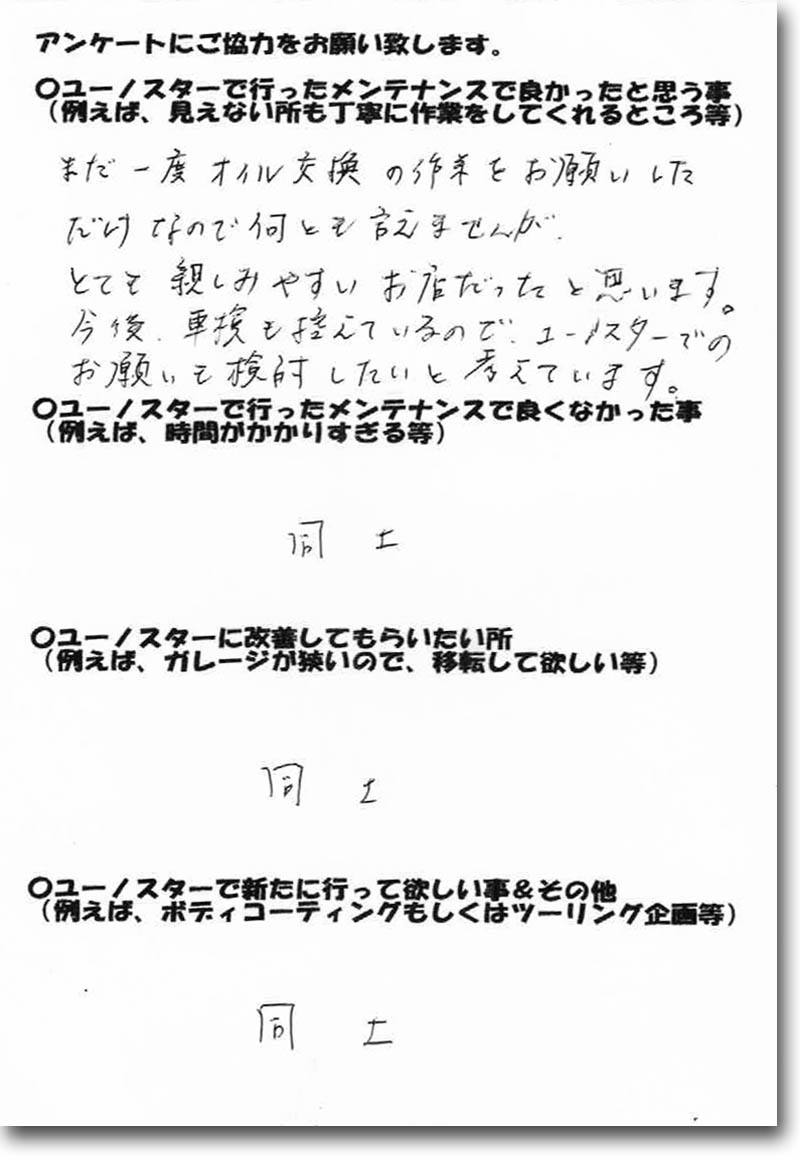 アンケートにご協力をお願い致します。
〇ユーノスターで行ったメンテナンスで良かったと思う事
（例えば、見えない所も丁寧に作業をしてくれるところ等）
まだ一度オイル交換の作業をお願いした
だけなので何とも言えませんが、
とても親しみやすいお店だったと思います。
今後、車検も控えているので、ユーノスターでの
お願いも検討したいと考えています。
〇ユーノスターで行ったメンテナンスで良くなかった事
（例えば、時間がかかりすぎる等）
同上
〇ユーノスターに改善してもらいたい所
（例えば、ガレージが狭いので、移転して欲しい等）
同上
〇ユーノスターで新たに行って欲しい事＆その他
（例えば、ボディコーティングもしくはツーリング企画等）
同上